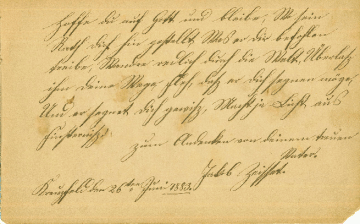 Hoffe du auf Gott und bleibe, Wo sein
Rath dich hin gestellt, Was er dir befohlen
treibe, Wandre redlich durch die Welt, Überlaß
ihm deine Wege, daß er dich segnen möge,
Und er segnet dich gewiß, Macht ja Licht aus
Finsterniß.
Zum Andenken von deinem treuen
Vater.
Jakob
Kreuzfeld den 26ten Juni 1883.